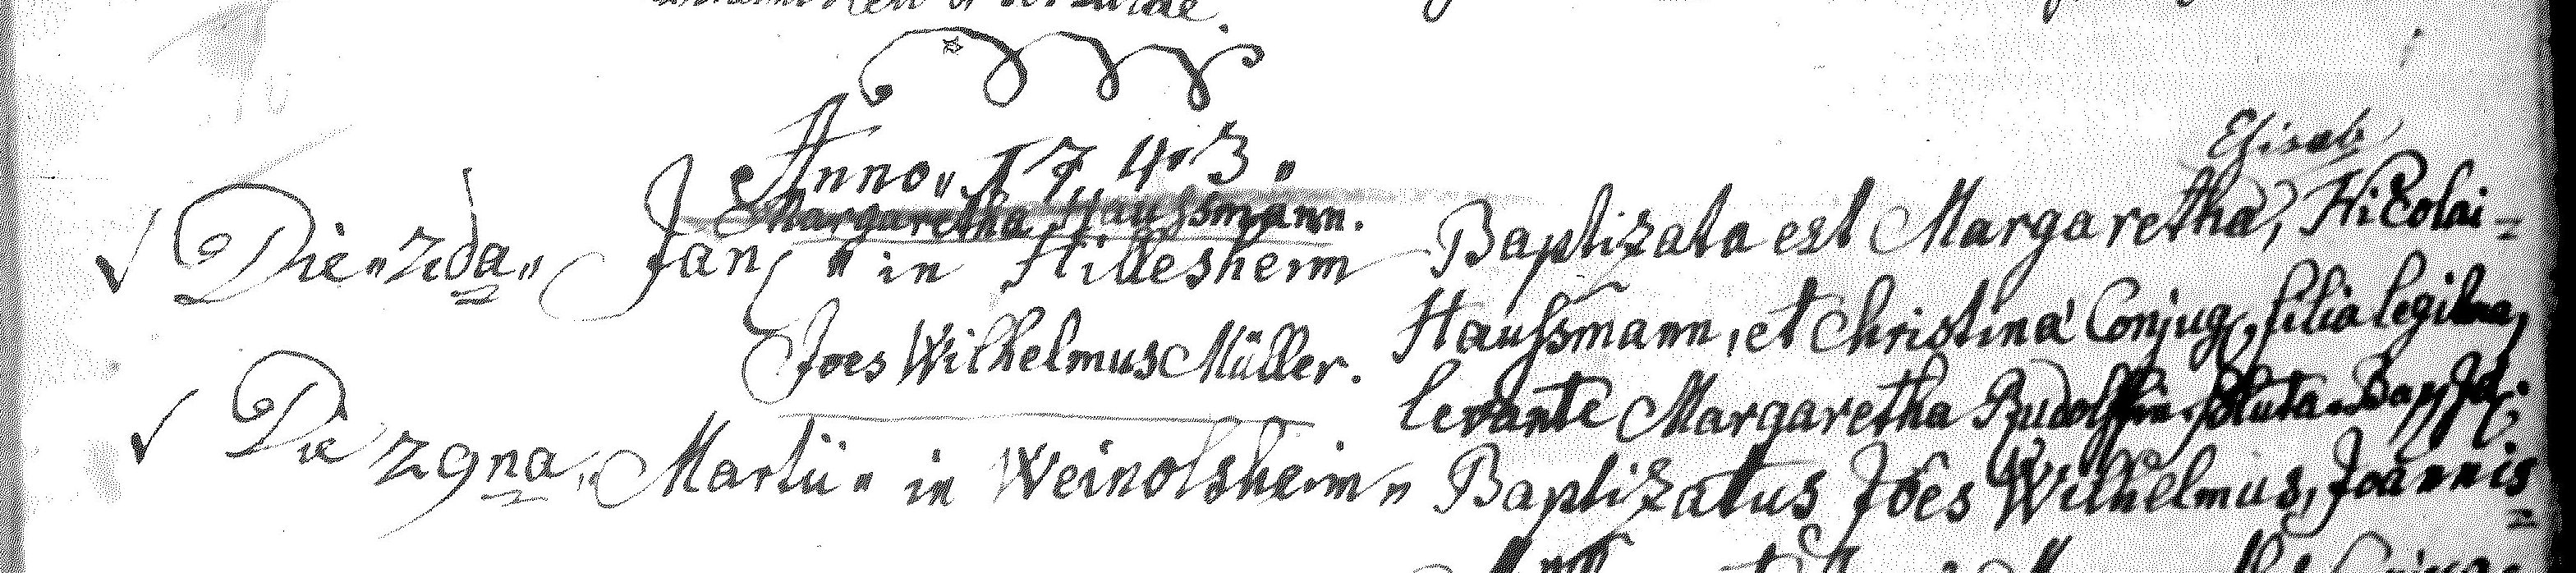 Anno 1743.
Elisab
Margaretha Haussmann.
Die 2da Jan in Hillesheim Baptizata est Margaretha, Nicolai=
Haussmann, et Christina Conjug, filia legitima,
Joes Wilhelmus Müller.
levante Margaretha Rudolffin soluta
Die 29na Martii in Weinolsheim Baptizatus Joes Wilhelmus, Joannis=